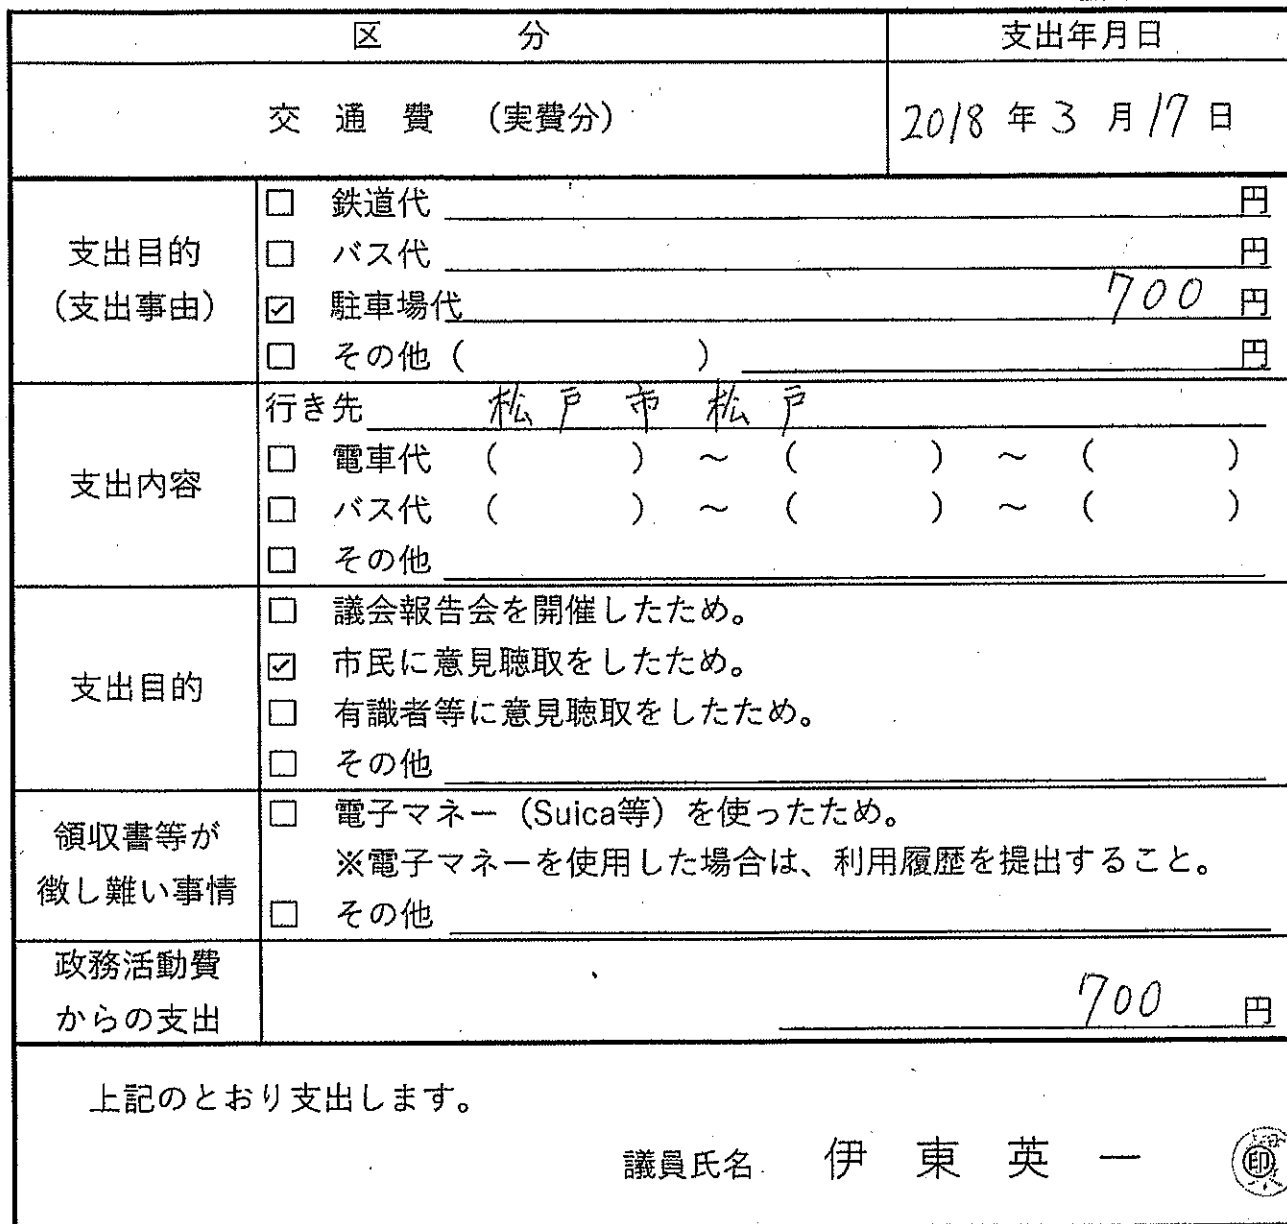 区 分 支出年月日
交 通 費 (実費分) 2018 年 3 月 17 日
支出目的
(支出事由)
□ 鉄道代 円
□ バス代 円
☑ 駐車場代 700 円
□ その他 ( ) 円
支出内容
行き先 松戸市松戸
□ 電車代 ( ) ～ ( ) ～ ( )
□ バス代 ( ) ～ ( ) ～ ( )
□ その他
支出目的
□ 議会報告会を開催したため。
☑ 市民に意見聴取をしたため。
□ 有識者等に意見聴取をしたため。
□ その他
領収書等が
徴し難い事情
□ 電子マネー (Suica等) を使ったため。
※電子マネーを使用した場合は、利用履歴を提出すること。
□ その他
政務活動費
からの支出
700 円
上記のとおり支出します。
議員氏名 伊 東 英 一 印